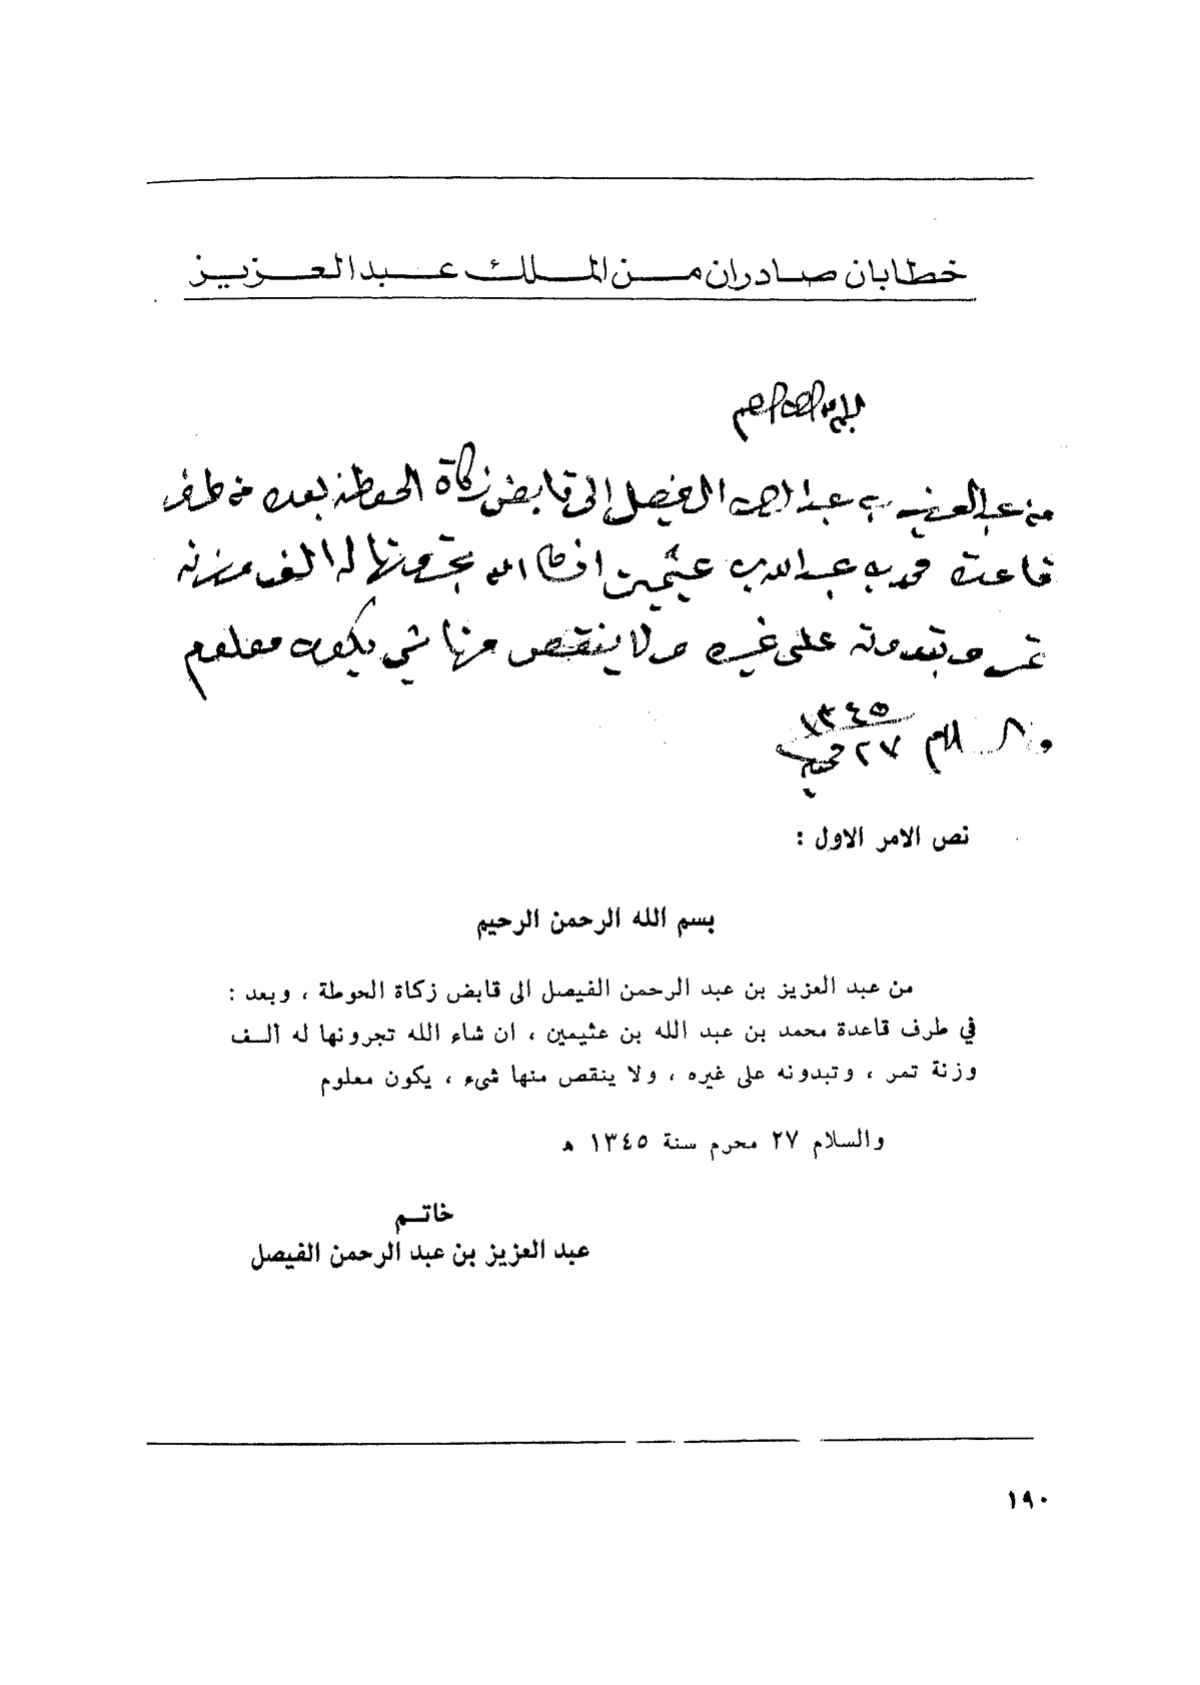 خطابان صادران من الملك عبد العزيز
بسم الله الرحمن الرحيم
من عبد العزيز بن عبد الرحمن الفيصل الى قابض زكاة الحوطة بعد في طرف
قاعدة محمد بن عبد الله بن عثيمين انشا الله تجرونها له الف وزنه
تمر وتبدونه على غيره ولا ينقص منها شي يكون معلوم
والسلام ٢٧ محرم ١٣٤٥
نص الامر الاول :
بسم الله الرحمن الرحيم
من عبد العزيز بن عبد الرحمن الفيصل الى قابض زكاة الحوطة ، وبعد :
في طرف قاعدة محمد بن عبد الله بن عثيمين ، ان شاء الله تجرونها له ألف
وزنة تمر ، وتبدونه على غيره ، ولا ينقص منها شىء ، يكون معلوم
والسلام ٢٧ محرم سنة ١٣٤٥ ه
خاتم
عبد العزيز بن عبد الرحمن الفيصل
١٩٠